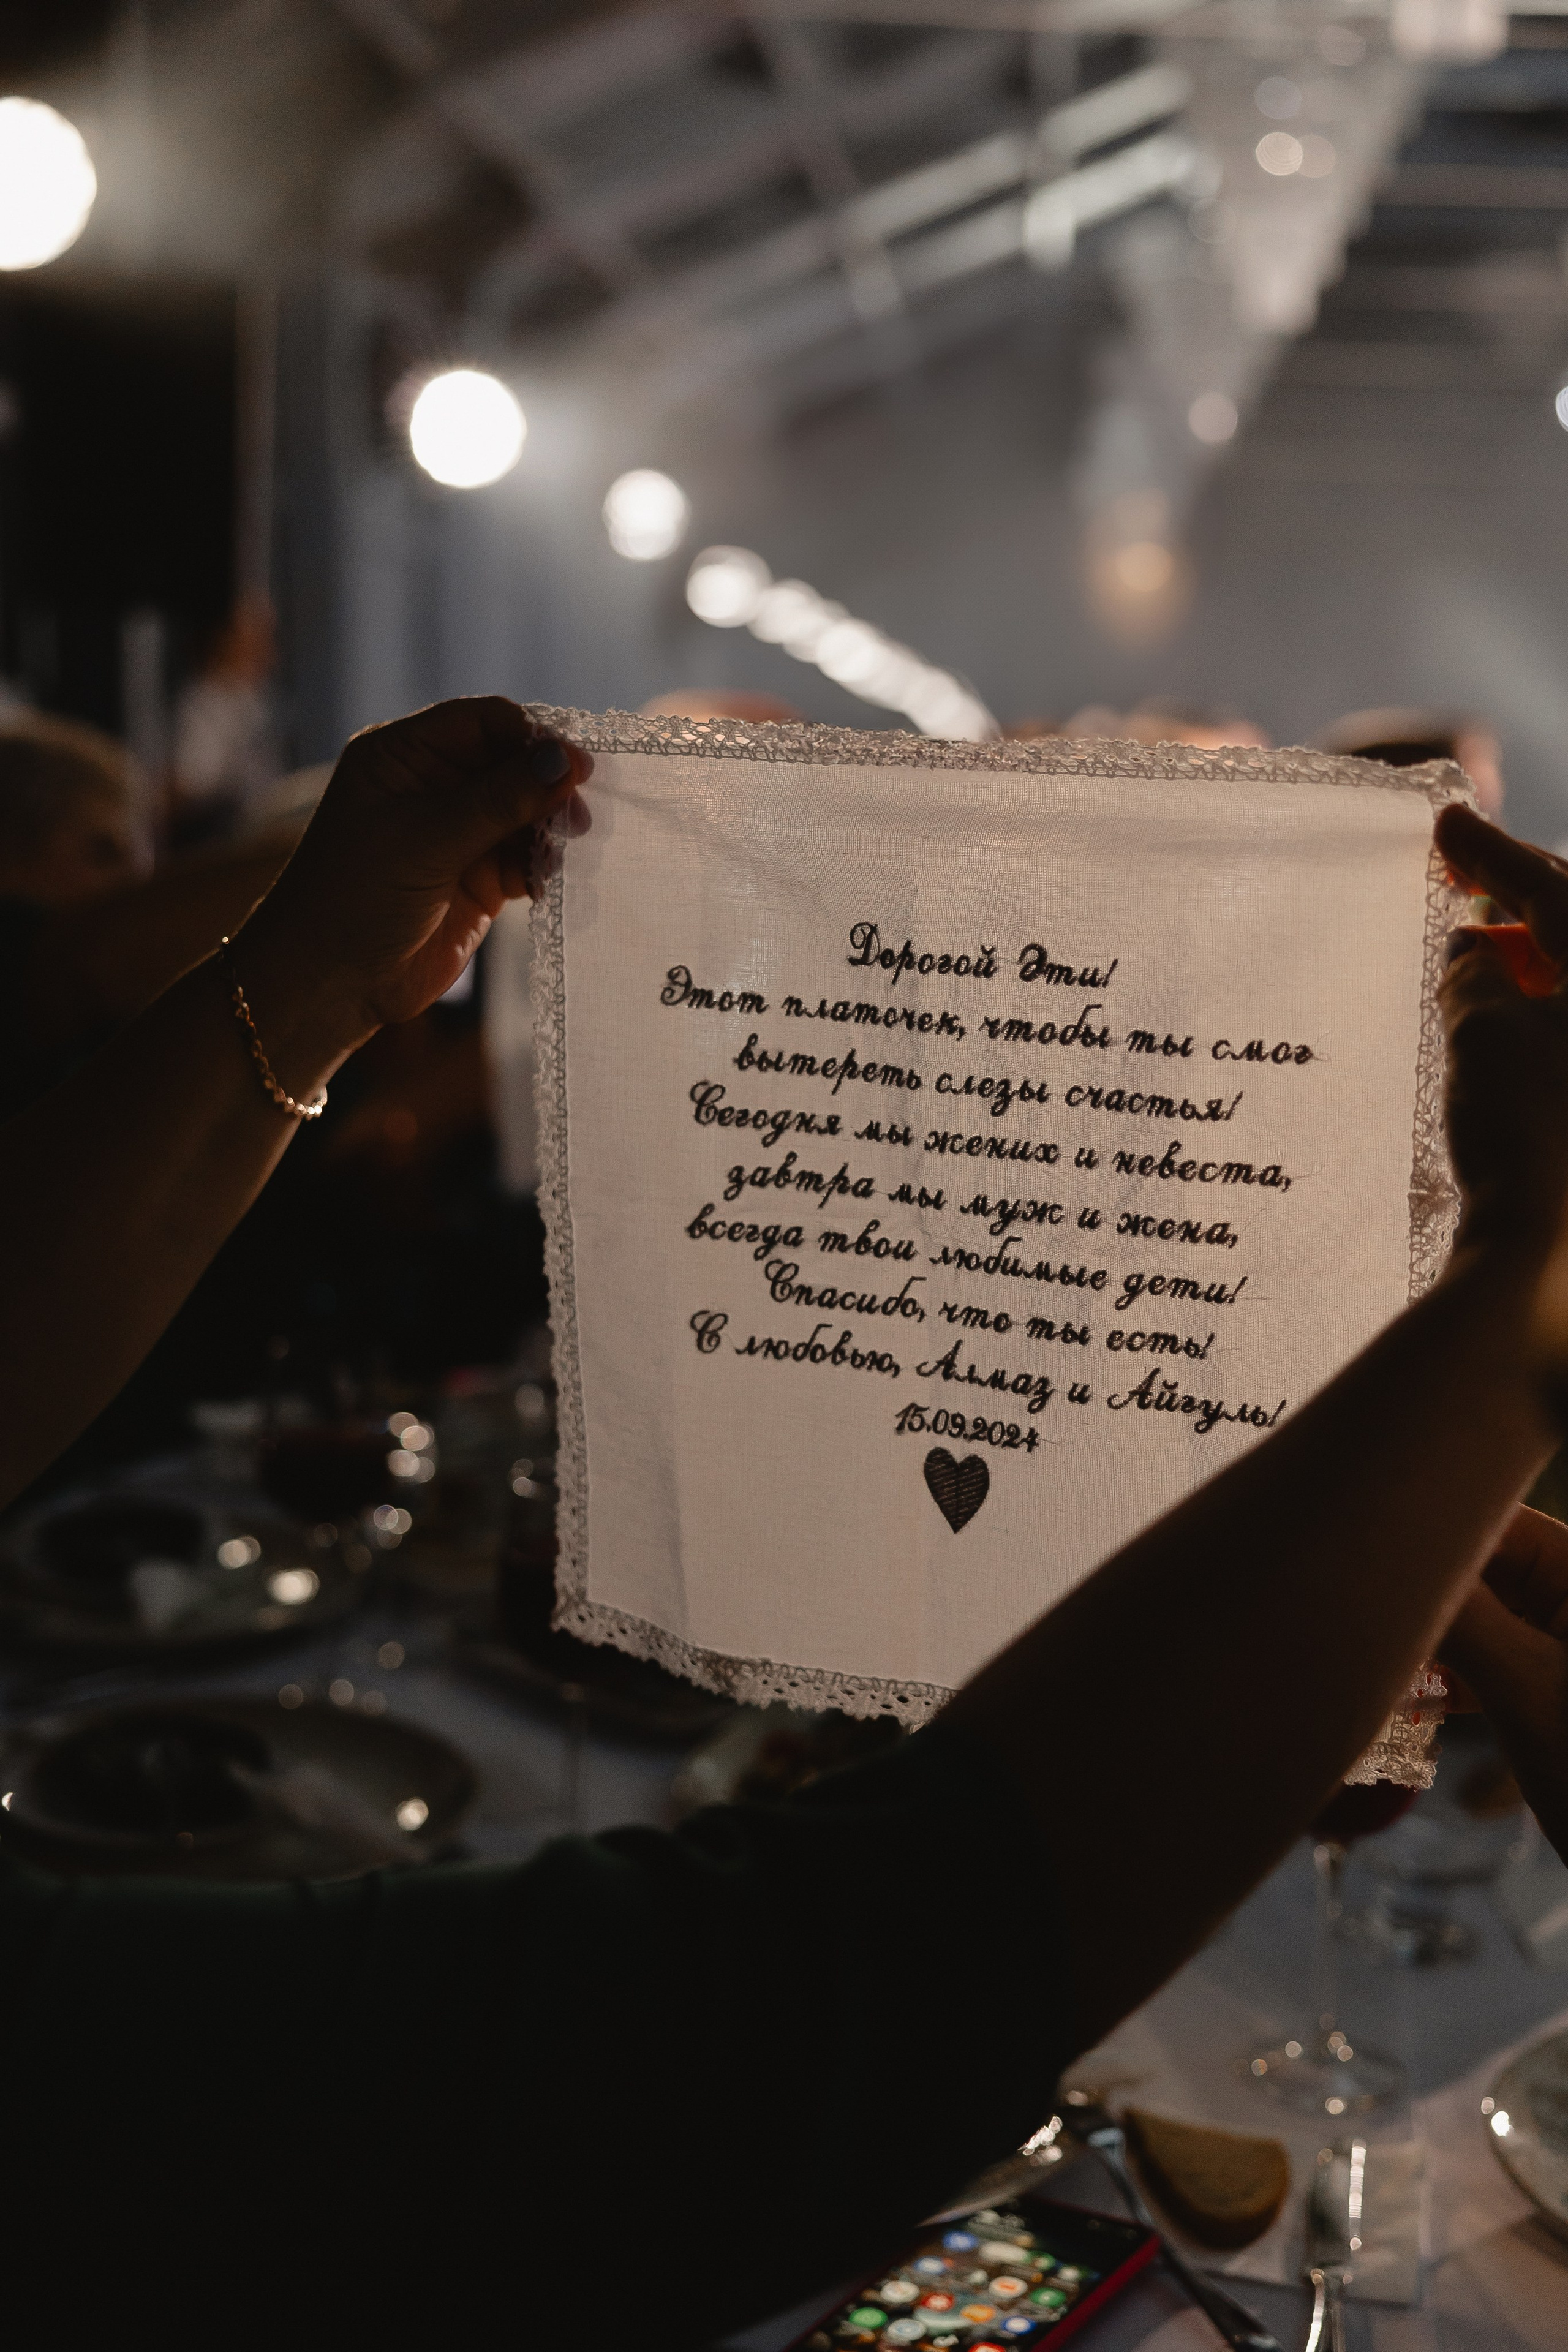 Дорогой Эти!
Этот платочек, чтобы ты смог
вытереть слезы счастья!
Сегодня мы жених и невеста,
завтра мы муж и жена,
всегда твои любимые дети!
Спасибо, что ты есть!
С любовью, Алмаз и Айгуль!
15.09.2024